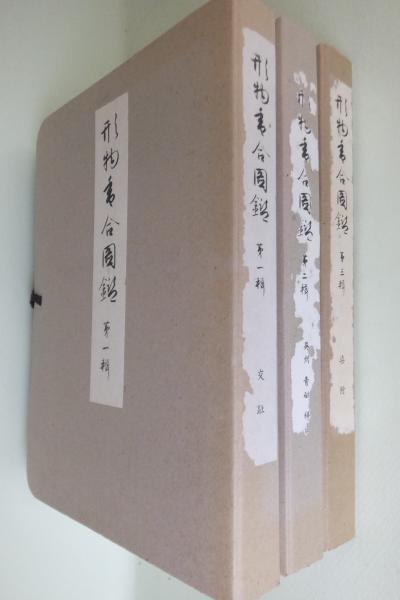 形物香合圖鑑 第一輯
形物香合圖鑑 第一輯 交趾
形物香合圖鑑 第二輯 呉州 青磁 祥
形物香合圖鑑 第三輯 染付